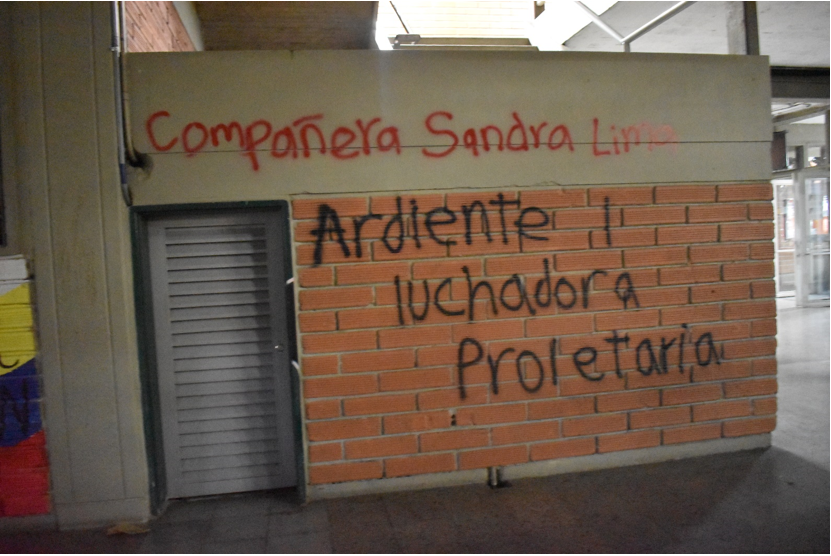 Compañera Sandra Lima
Ardiente |
luchadora
Proletaria